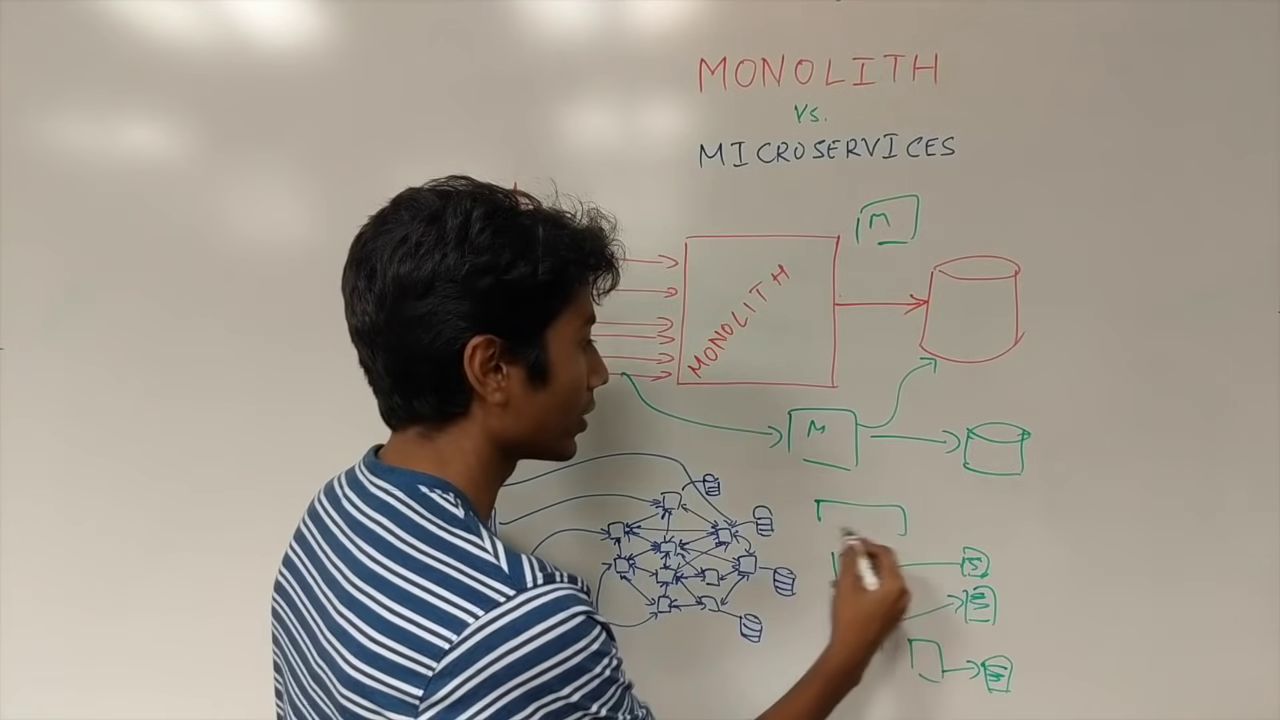 MONOLITH
Vs.
MICROSERVICES
M
MONOLITH
M
S